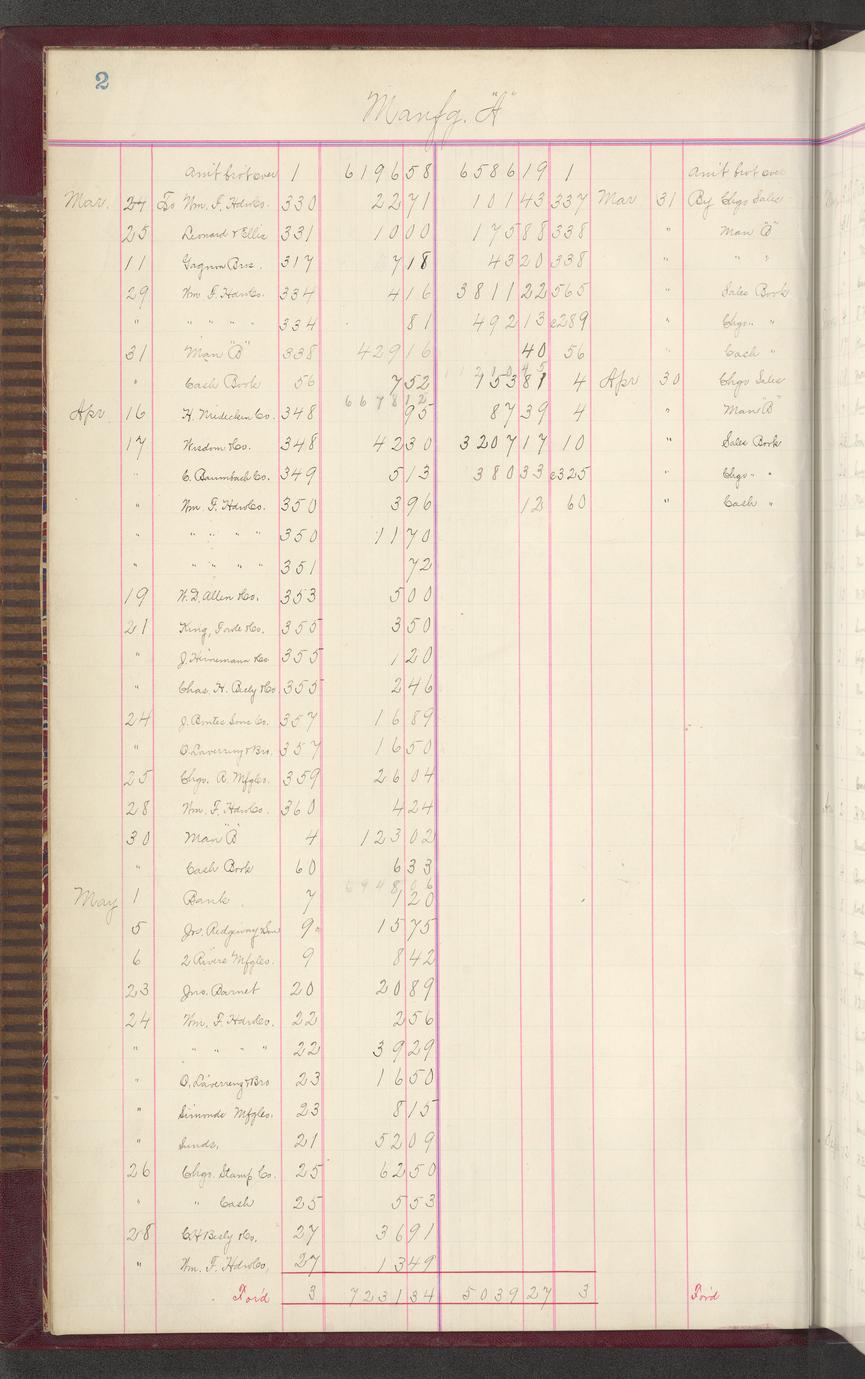 2
Manfg. "A"
Am't bro't over 1 6196 58 6586 19 1 Am't bro't over
Mar. 24 To Wm. F. Hdw Co. 330 22 71 101 43 337 Mar 31 By Chgo Sales
25 Leonard & Ellis 331 10 00 175 88 338 " Man "B"
11 Gagnon Bros. 317 7 18 43 20 338 " " "
29 Wm F. Hdw Co. 334 4 16 3811 22 565 " Sales Book
" " " " " 334 81 492 13 c289 " Chgo " "
31 Man "B" 338 429 16 40 56 " Cash "
" Cash Book 56 7 52 4 Apr 30 Chgo Sales
6678 12
Apr 16 348 95 87 39 4 " Man "B"
17 Wisdom & Co. 348 42 30 3207 17 10 " Sales Book
" C. Baumbach Co. 349 5 13 380 33 c325 " Chgo " "
" Wm. F. Hdw Co. 350 3 96 12 60 " Cash "
" " " " " 350 11 70
" " " " " 351 72
19 W. D. Allen & Co. 353 5 00
21 King, & Co. 355 3 50
" J. Heinemann & Co 355 1 20
" Chas. H. Besly & Co 355 2 46
24 J. Sons Co. 357 16 89
" O. & Bro. 357 16 50
25 Chgo. R. Mfg Co. 359 26 04
28 Wm. F. Hdw Co. 360 4 24
30 Man "B" 4 123 02
" Cash Book 60 6 33
6948 06
May 1 Bank 7 1 20
5 Jos. Ridgway & Son 9 15 75
6 2 Rivers Mfg Co. 9 8 42
23 Jno. Barnet 20 20 89
24 Wm. F. Hdw Co. 22 2 56
" " " " " 22 39 29
" O. & Bro 23 16 50
" Simonds Mfg Co. 23 8 15
" Sunds. 21 52 09
26 Chgo. Stamp Co. 25 62 50
" " Cash 25 5 53
28 C H Besly & Co. 27 36 91
" Wm. F. Hdw Co. 27 13 49
For'd 3 7231 34 5039 27 3 For'd